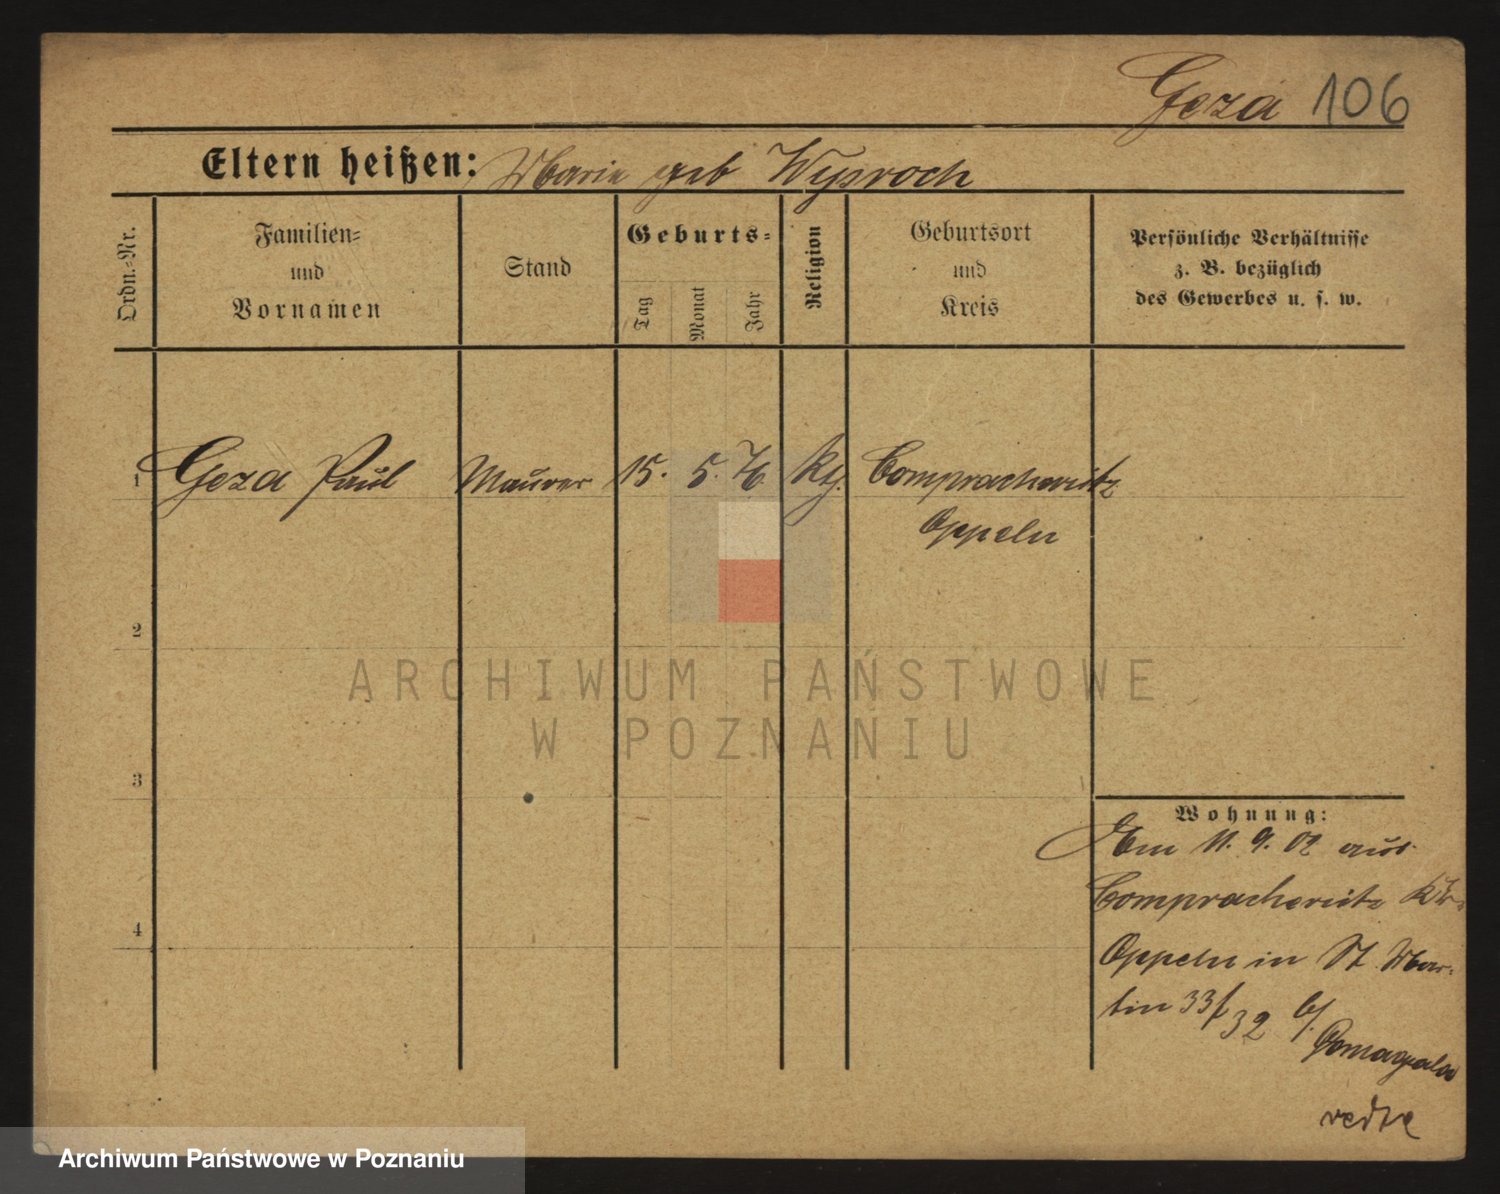 Geza 106
Eltern heißen: Marie geb Wysroch
Ordn.-Nr.
Familien-
und
Vornamen
Stand
Geburts-
Tag
Monat
Jahr
Religion
Geburtsort
und
Kreis
Persönliche Verhältnisse
z. B. bezüglich
des Gewerbes u. s. w.
1 Geza Paul Maurer 15. 5. 76. Comprachcütz
Oppeln
2
ARCHIWUM PAŃSTWOWE
W POZNANIU
3
Wohnung:
Am 11. 9. 02 aus
4
Oppeln in St Mar-
tin 33/ 32 b/
Archiwum Państwowe w Poznaniu